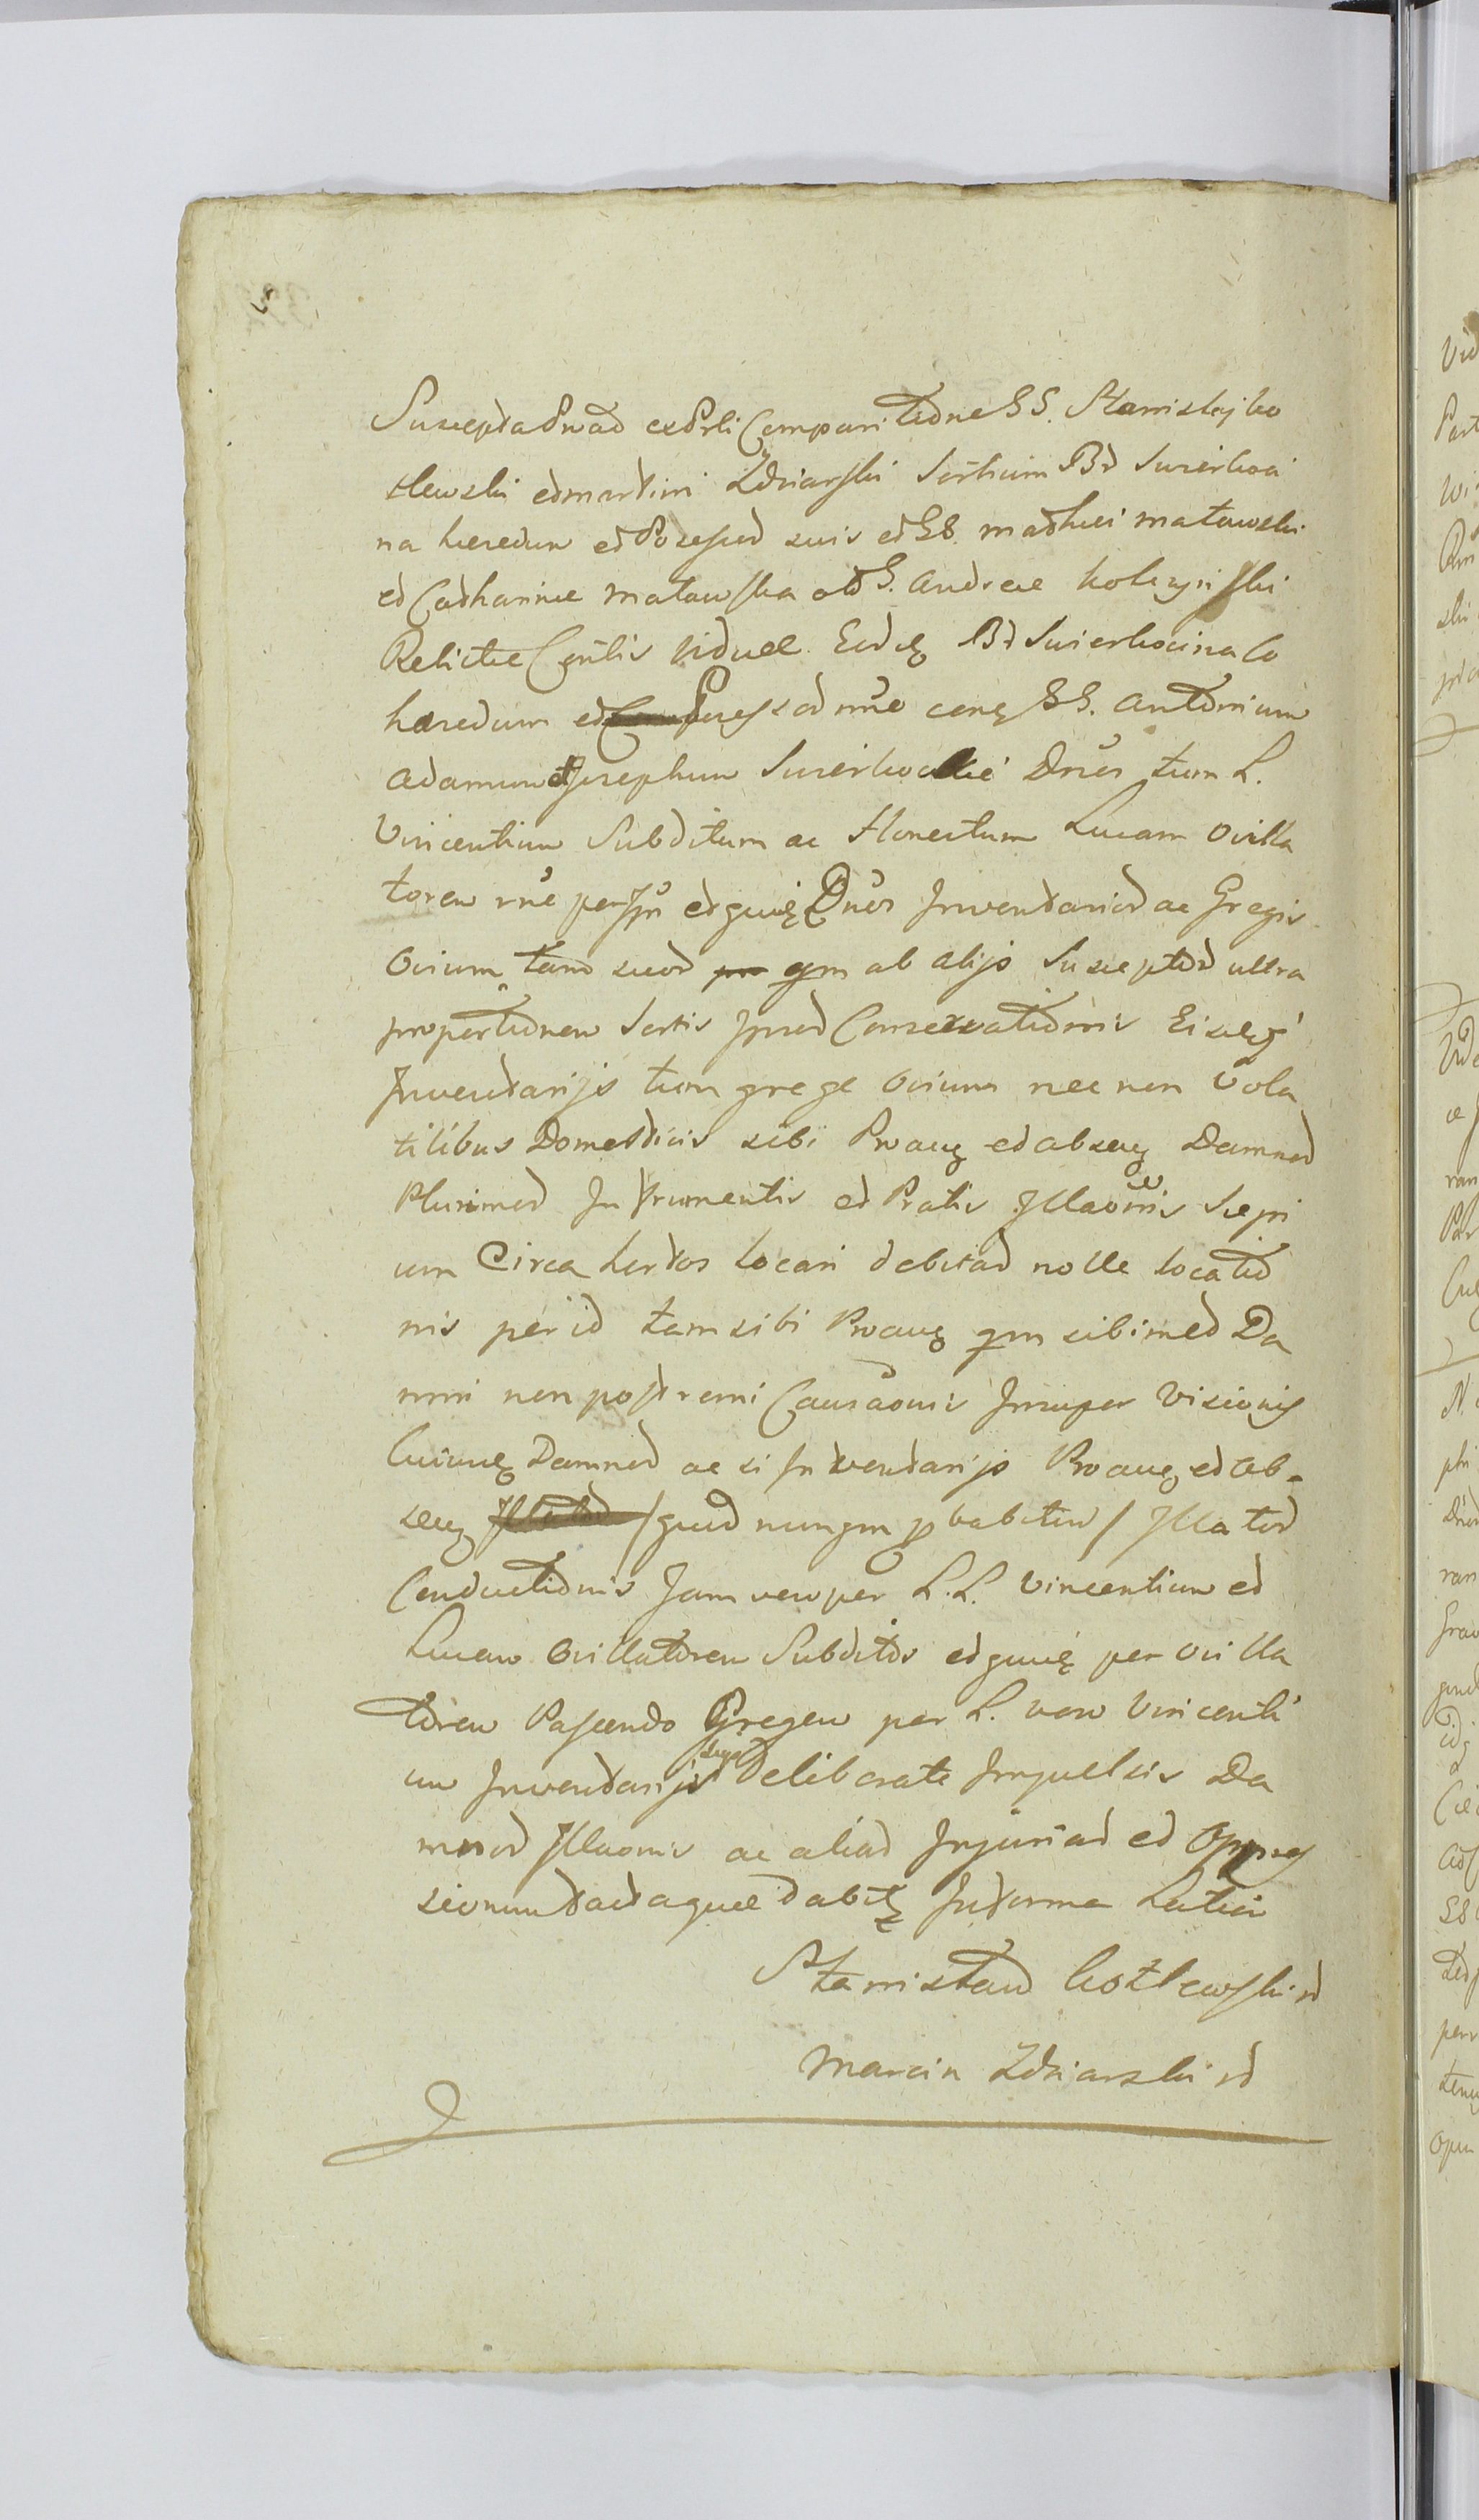 Suscepta Prnad ex Prli Comparitione SS. Stanislaj ko
tlewski et martini Zdziarski Sortium Bd Swierkoci
na heredum et Posessod suis et SS. mathei matowski
et Catharinae matowska ol S. Andreae kolczynski
Relictae Cntis viduae Eod Bd Swierkocina Co
haeredum et Possessod nne conq SS. Antonium
Adamum et Josephum Swierkockie Dnos tum L.
Vincentium Subditum ac Honestum Lucam ovilla
torem nne per Jpn et quiq Dnos Jnventariod ac Gregis
Ovium tam suod qm ab alijs Susceptod ultra
proportionem Sortis Jpsod Conservationis Eisdq
Jnventarijs tum grege ovium nec non vola
tilibus Domesticis sibi Proacq et absenq Damnod
Plurimod Jn frumentis et Pratis Jllaonis Sepi
um Circa hortos locari debitad nolle locatio
nis per id tam sibi Proacq qm sibimet Da
mni non postremi Causaonis Jnsuper visionis
Cuiusq Damnod ac si Jnventarijs Proacq et Ab-
senq /quod nunqm pbabitur/ Jllatod
Conductionis Jam vero per L.L. Vincentium et
Lucam Ovillatorem Subditos et quiq per ovilla
torem Pascendo Gregem per L. vero Vincenti
um Jnventarijs Deliberate Jmpulsis Da
mnod Jllaonis ac aliad Jnjuriad et Oppres
sionum tactaque dabitq Jn forma Latiori
Stanisław kotlewski
Marcin Zdziarski